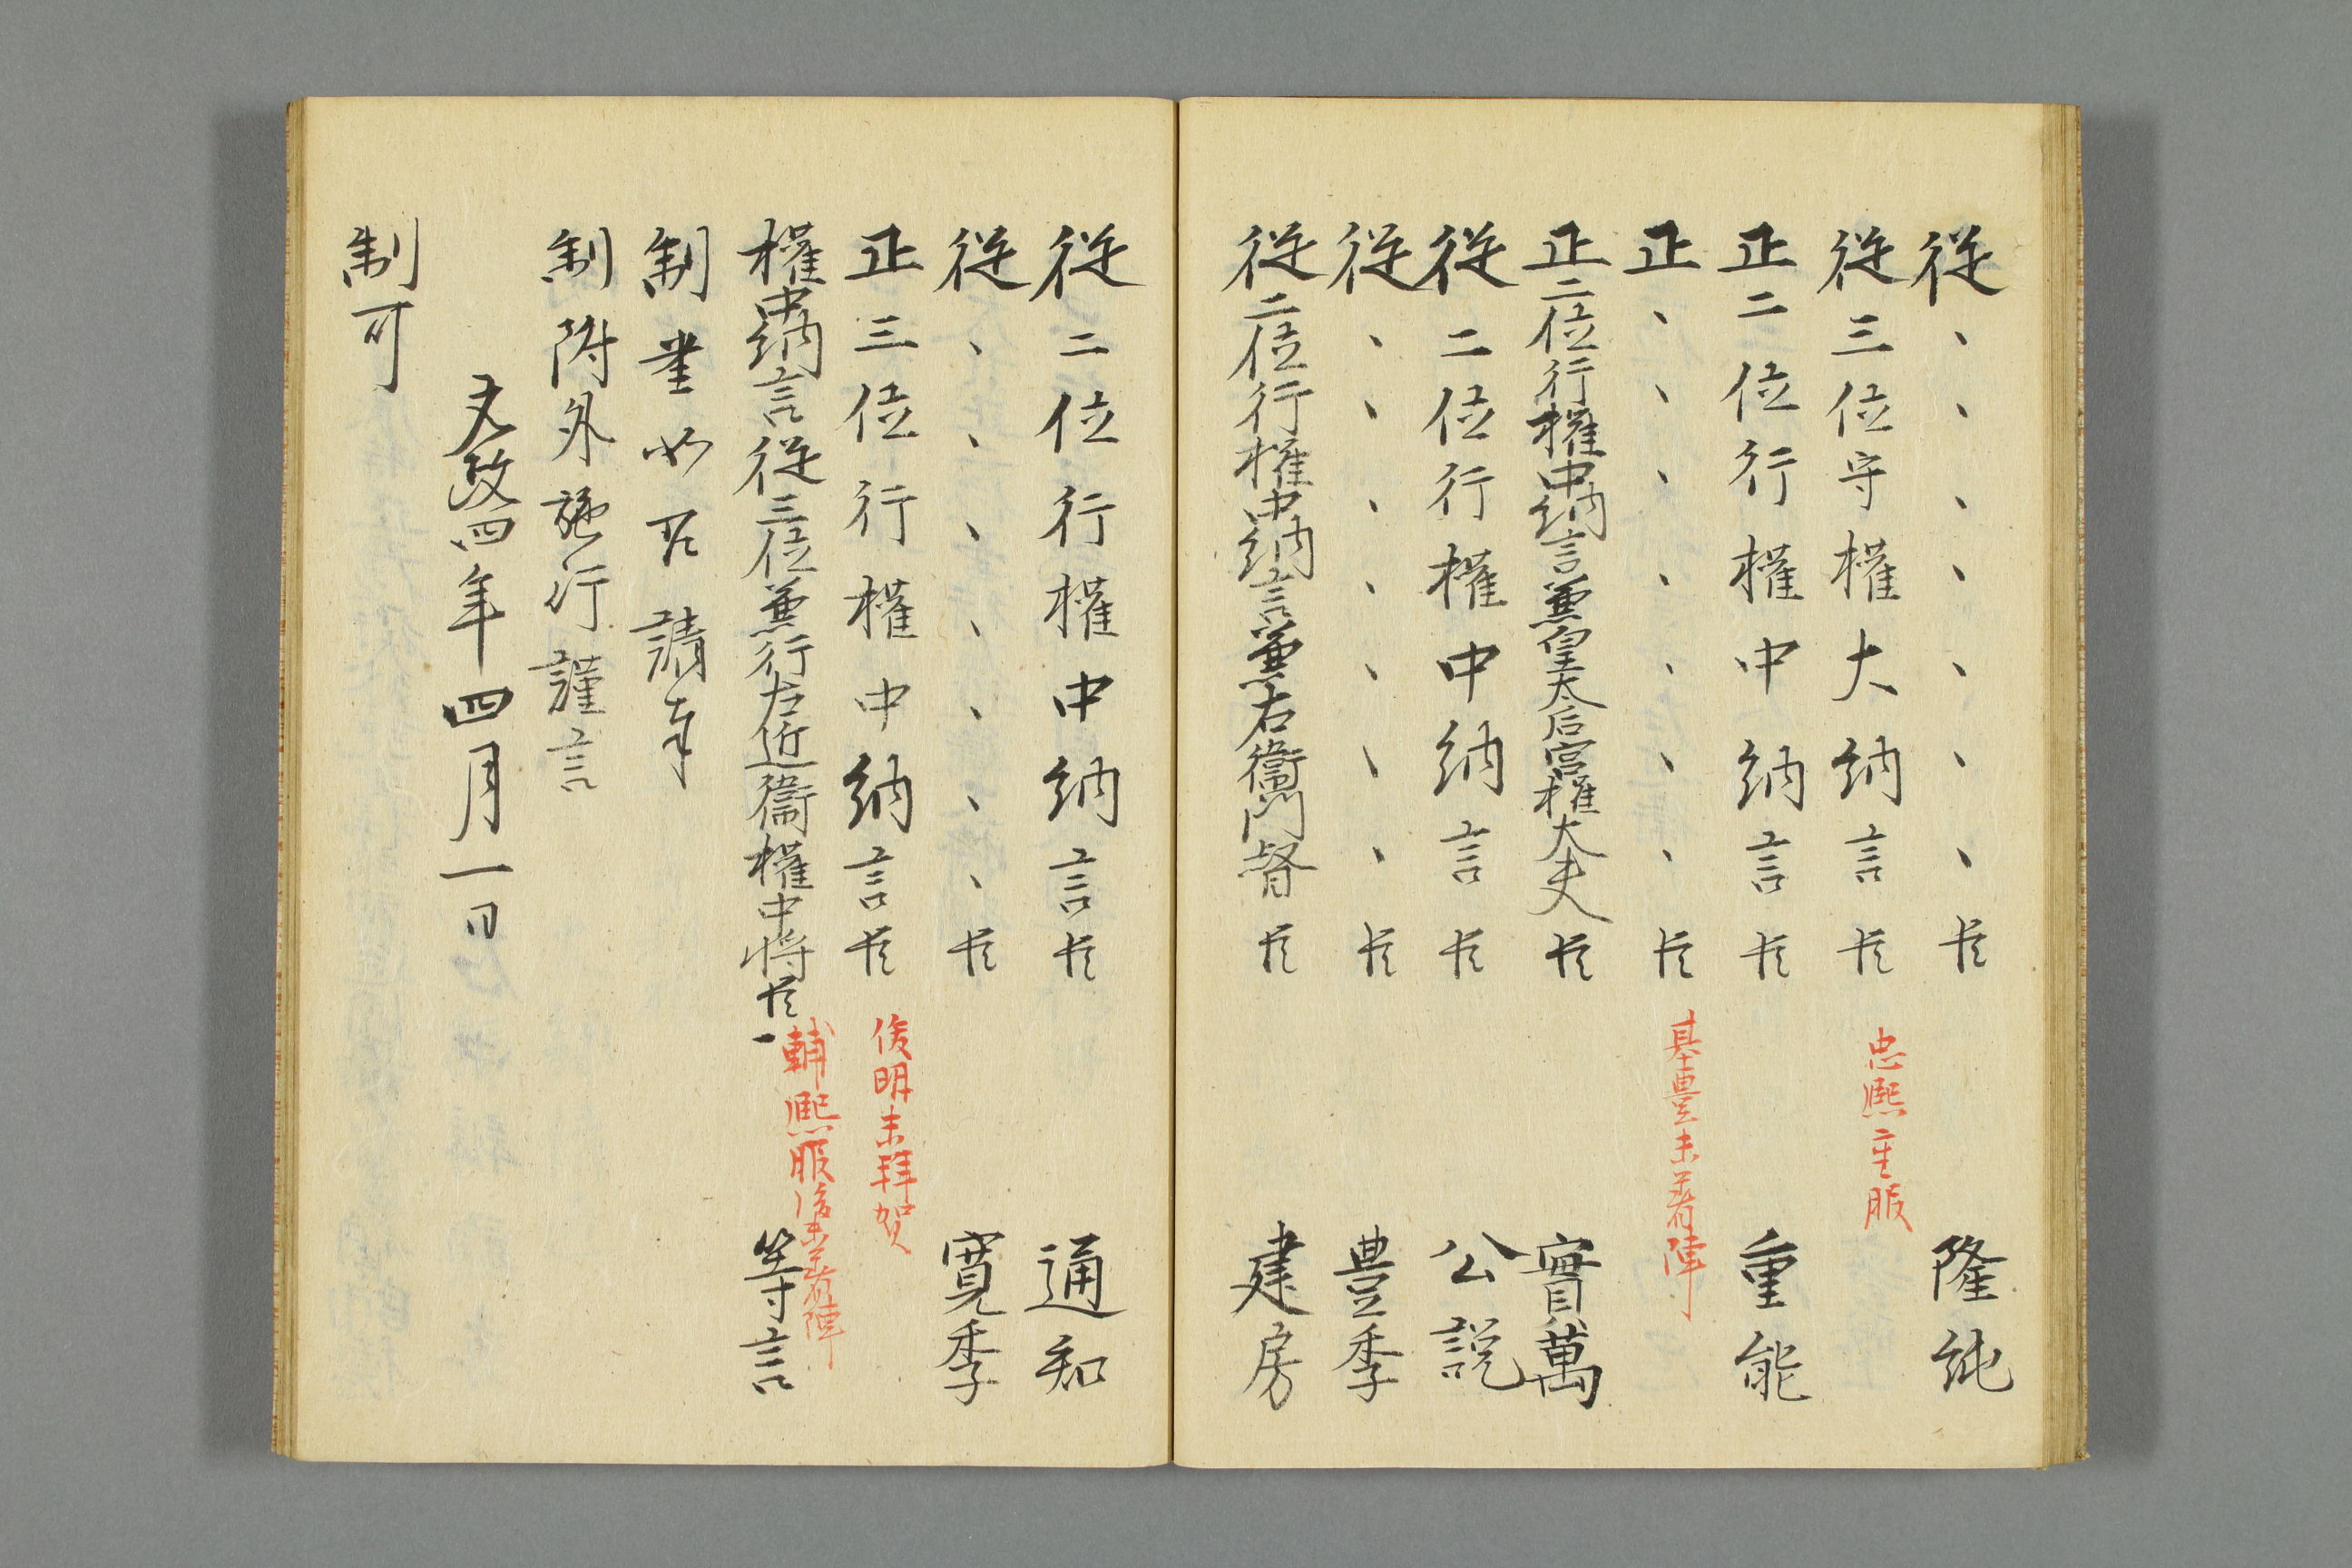 従、、、、、、、臣 隆純
従三位守権大納言臣 忠熈重服
正二位行権中納言臣 重能
正、、、、、、、臣 基豊未著陣
正二位行権中納言兼皇太后宮権大夫臣 實萬
従二位行権中納言臣 公説
従、、、、、、、臣 豊季
従二位行権中納言兼右衛門督臣 建房
従二位行権中納言臣 通知
従、、、、、、、臣 寛季
正三位行権中納言臣 俊明未拝賀
権中納言従三位兼行左近衛権中将臣 輔熈服後未著陣 等言
制書如右請奉
制附外施行謹言
文政四年四月一日
制可